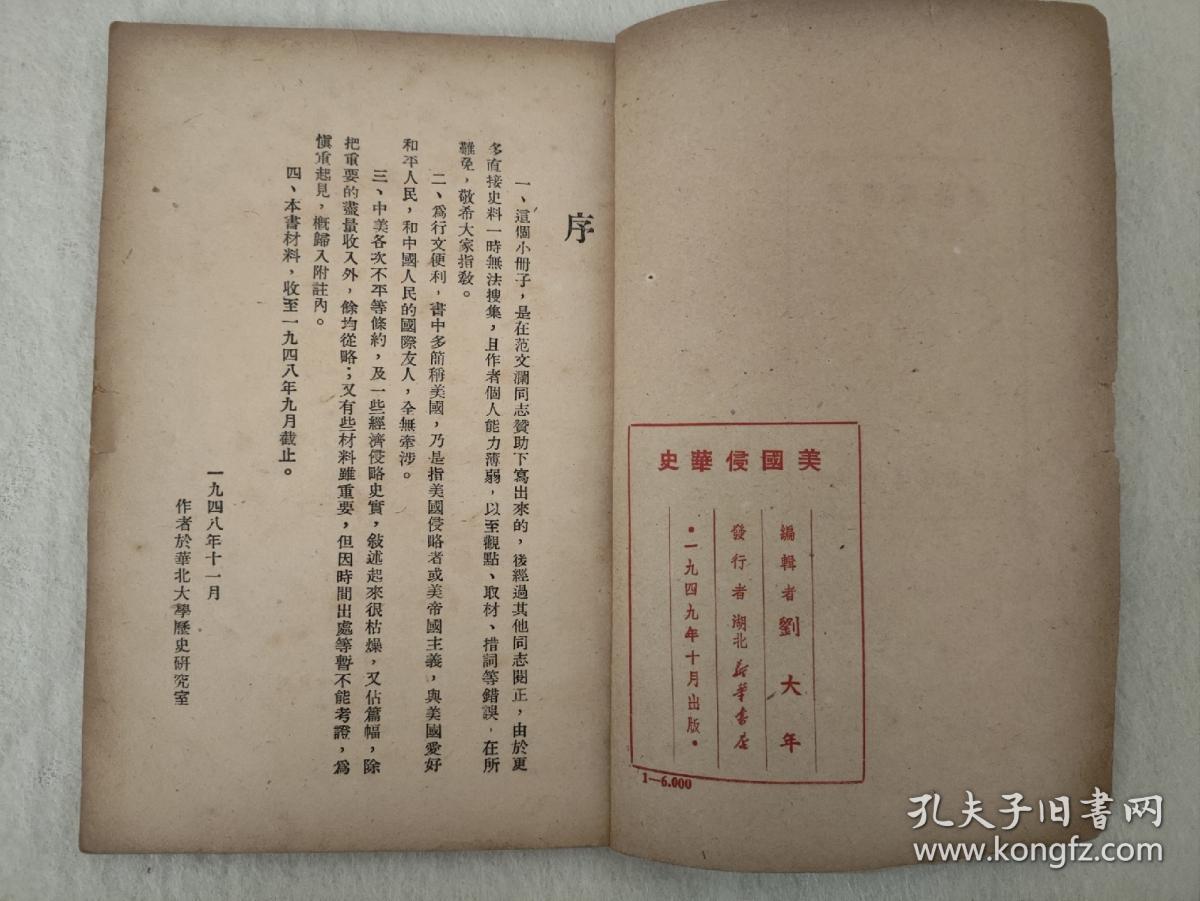 美國侵華史
編輯者 劉大年
發行者 湖北新華書店
·一九四九年十月出版·
1—6.000
序
一、這個小冊子，是在范文瀾同志贊助下寫出來的，後經過其他同志閱正，由於更
多直接史料一時無法搜集，且作者個人能力薄弱，以至觀點、取材、措詞等錯誤，在所
難免，敬希大家指教。
二、爲行文便利，書中多簡稱美國，乃是指美國侵略者或美帝國主義，與美國愛好
和平人民，和中國人民的國際友人，全無牽涉。
三、中美各次不平等條約，及一些經濟侵略史實，敍述起來很枯燥，又佔篇幅，除
把重要的盡量收入外，餘均從略；又有些材料雖重要，但因時間出處等暫不能考證，爲
愼重起見，概歸入附註內。
四、本書材料，收至一九四八年九月截止。
一九四八年十一月
作者於華北大學歷史硏究室
孔夫子旧书网
www.kongfz.com